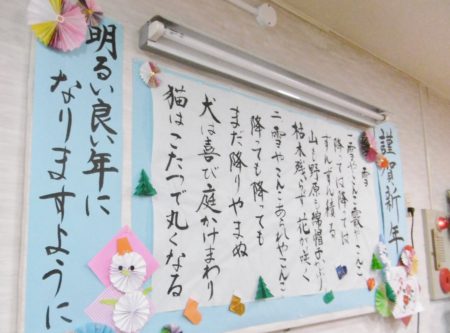 謹賀新年
雪
一、雪やこんこ霰やこんこ
降っては降っては
ずんずん積る
山も野原も綿帽子かぶり
枯木残らず花が咲く
二、雪やこんこあられやこんこ
降っても降っても
まだ降りやまぬ
犬は喜び庭かけまわり
猫はこたつで丸くなる
明るい良い年に
なりますように